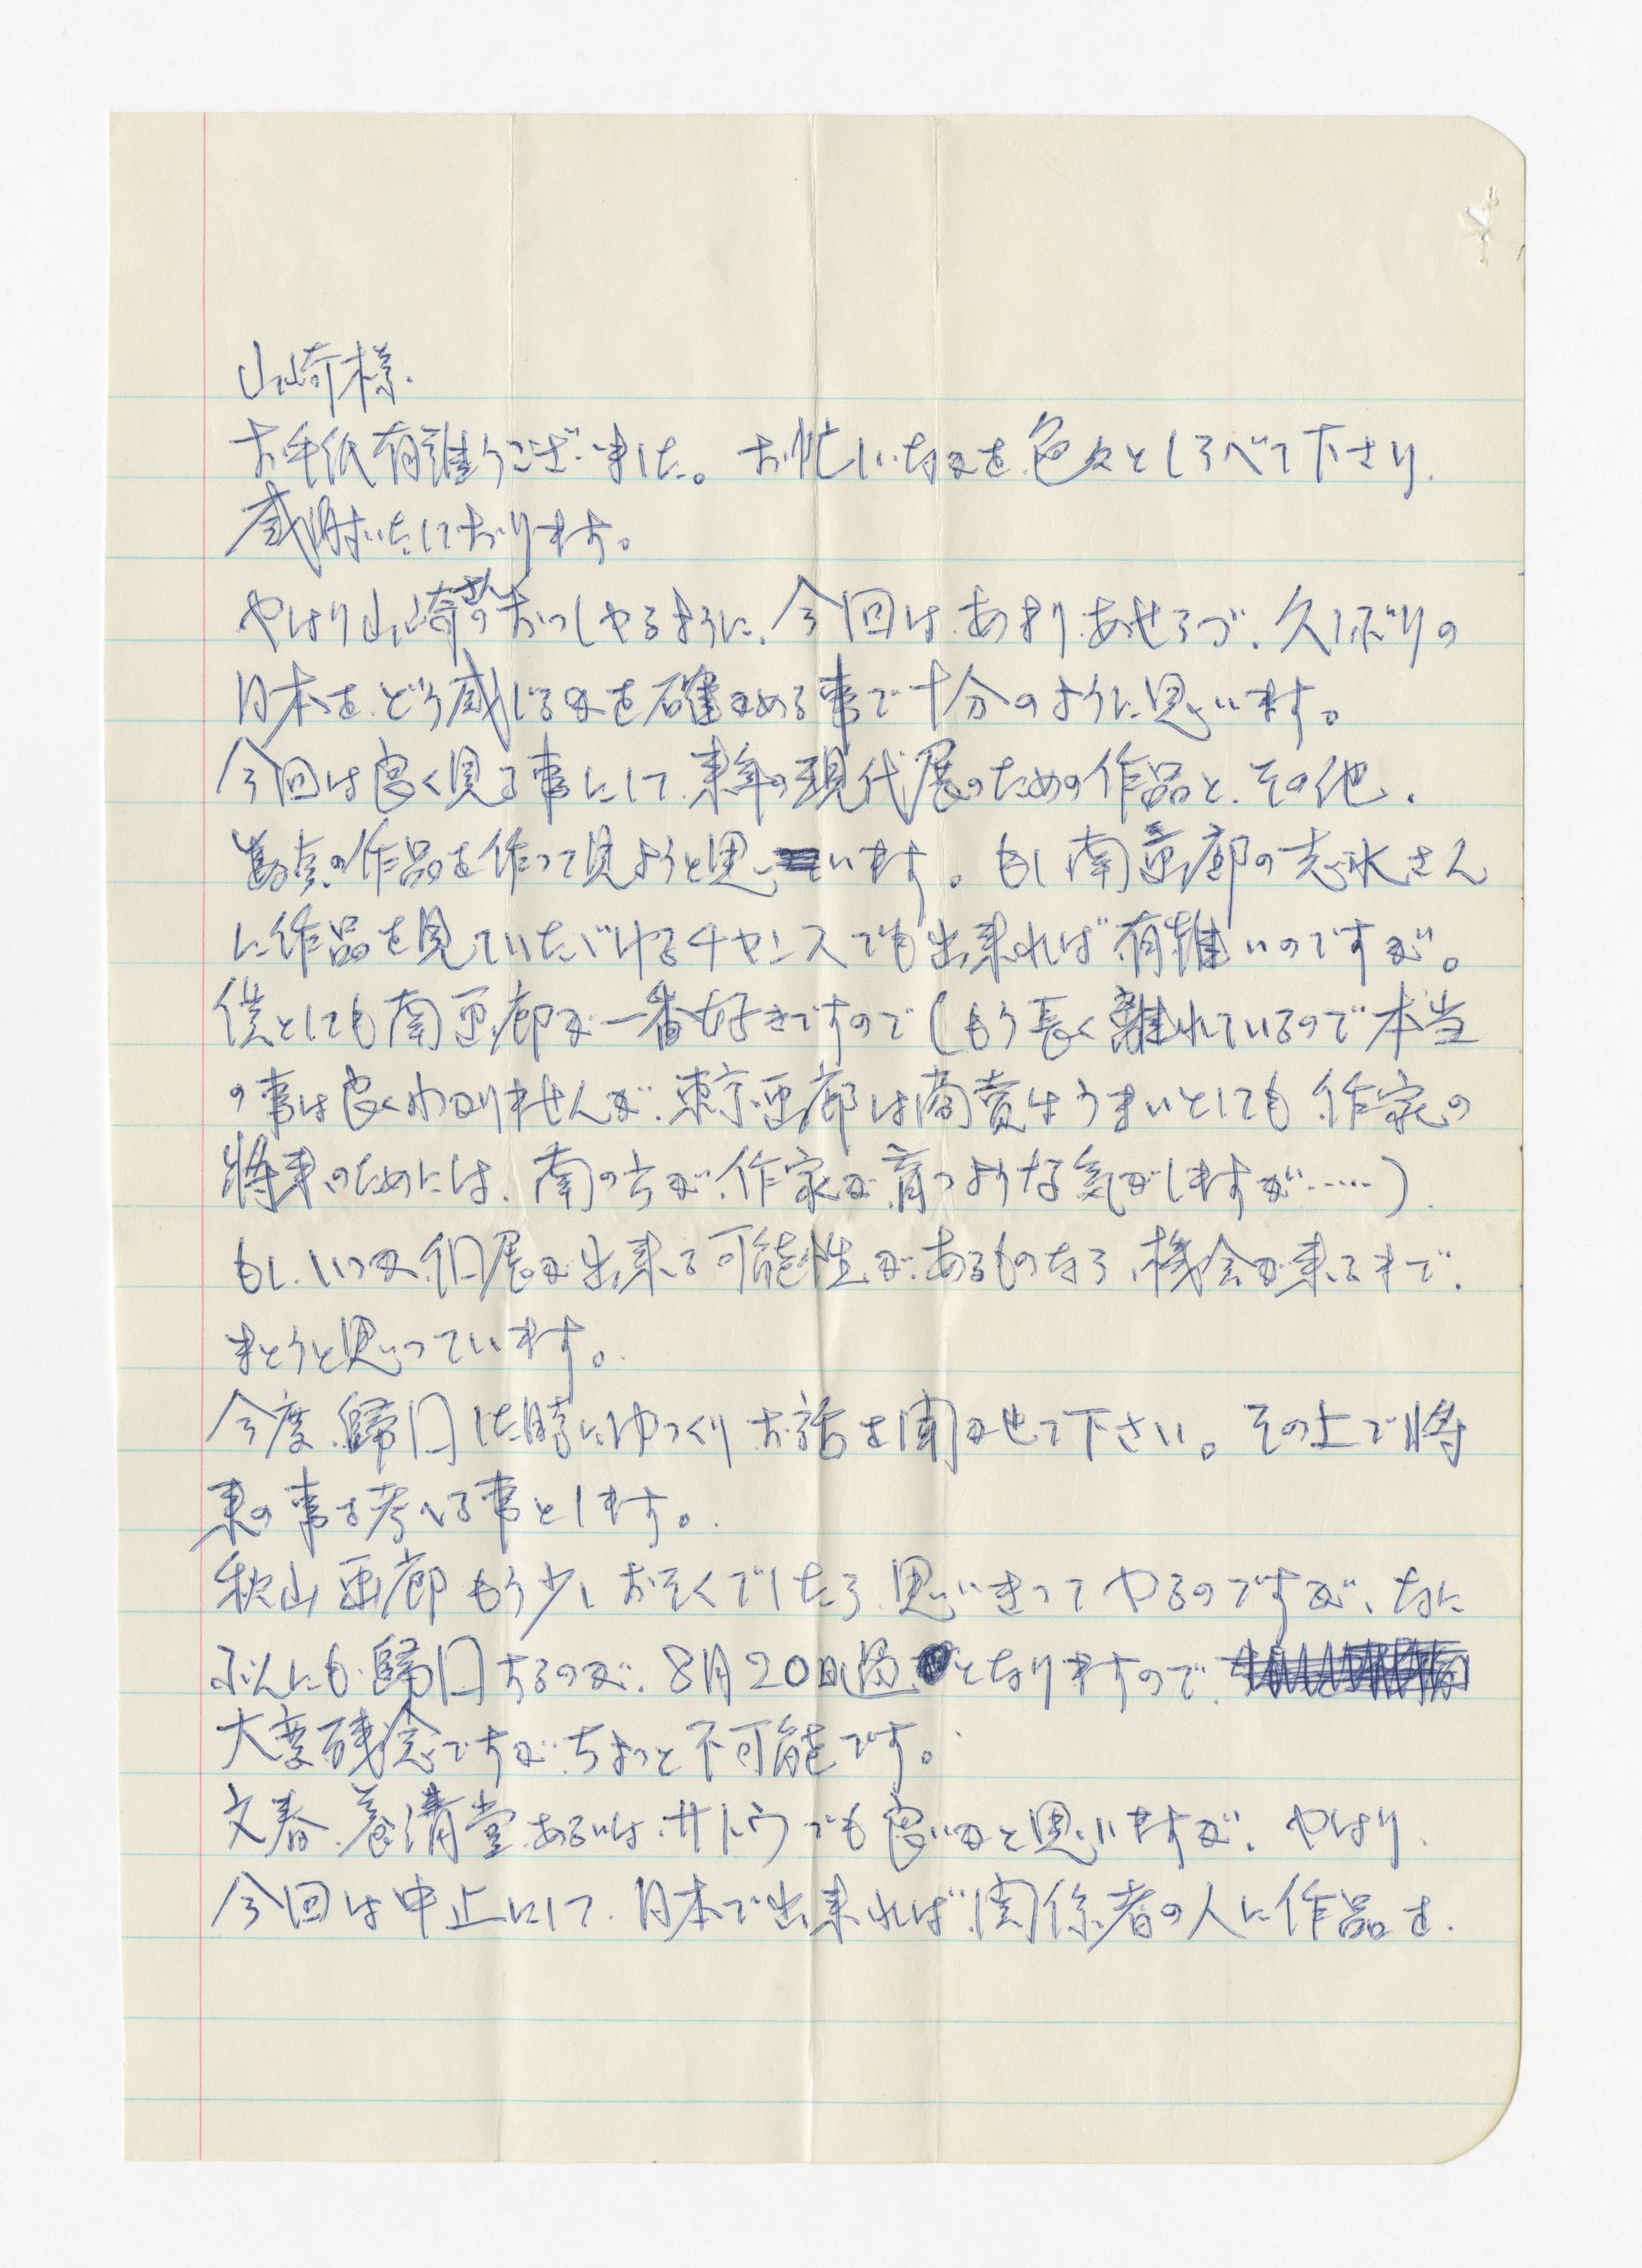 山崎様.
お手紙有難うございました。お忙しいなかを色々としらべて下さり、
感謝いたしております。
やはり山崎さんのおっしゃるように、今回はあまりあせらづ、久しぶりの
日本を、どう感じるかを確かめる事で十分のように思います。
今回は良く見る事にして、来年の現代展のための作品と、その他、
数点の作品を作って見ようと思います。もし南画廊の志水さん
に作品を見ていただけるチャンスでも出来れば有難いのですが。
僕としても南画廊が一番好きですので(もう長く離れているので本当
の事は良くわかりませんが、東京画廊は商売はうまいとしても、作家の
将来のためには、南の方が、作家が育つような気がしますが……)
もし、いつか、個展が出来る可能性が、あるものなら、機会が来るまで、
まとうと思っています。
今度、歸国した時にゆっくりお話を聞かせて下さい。その上で将
来の事を考へる事とします。
秋山画廊もう少しおそくでしたら、思いきってやるのですが、なに
ぶんにも歸国するのが、8月20日過となりますので、
大変残念ですが、ちょっと不可能です。
文春、養清堂、あるいは、サトウでも良いかと思いますが、やはり、
今回は中止にして、日本で出来れば、関係者の人に作品を、